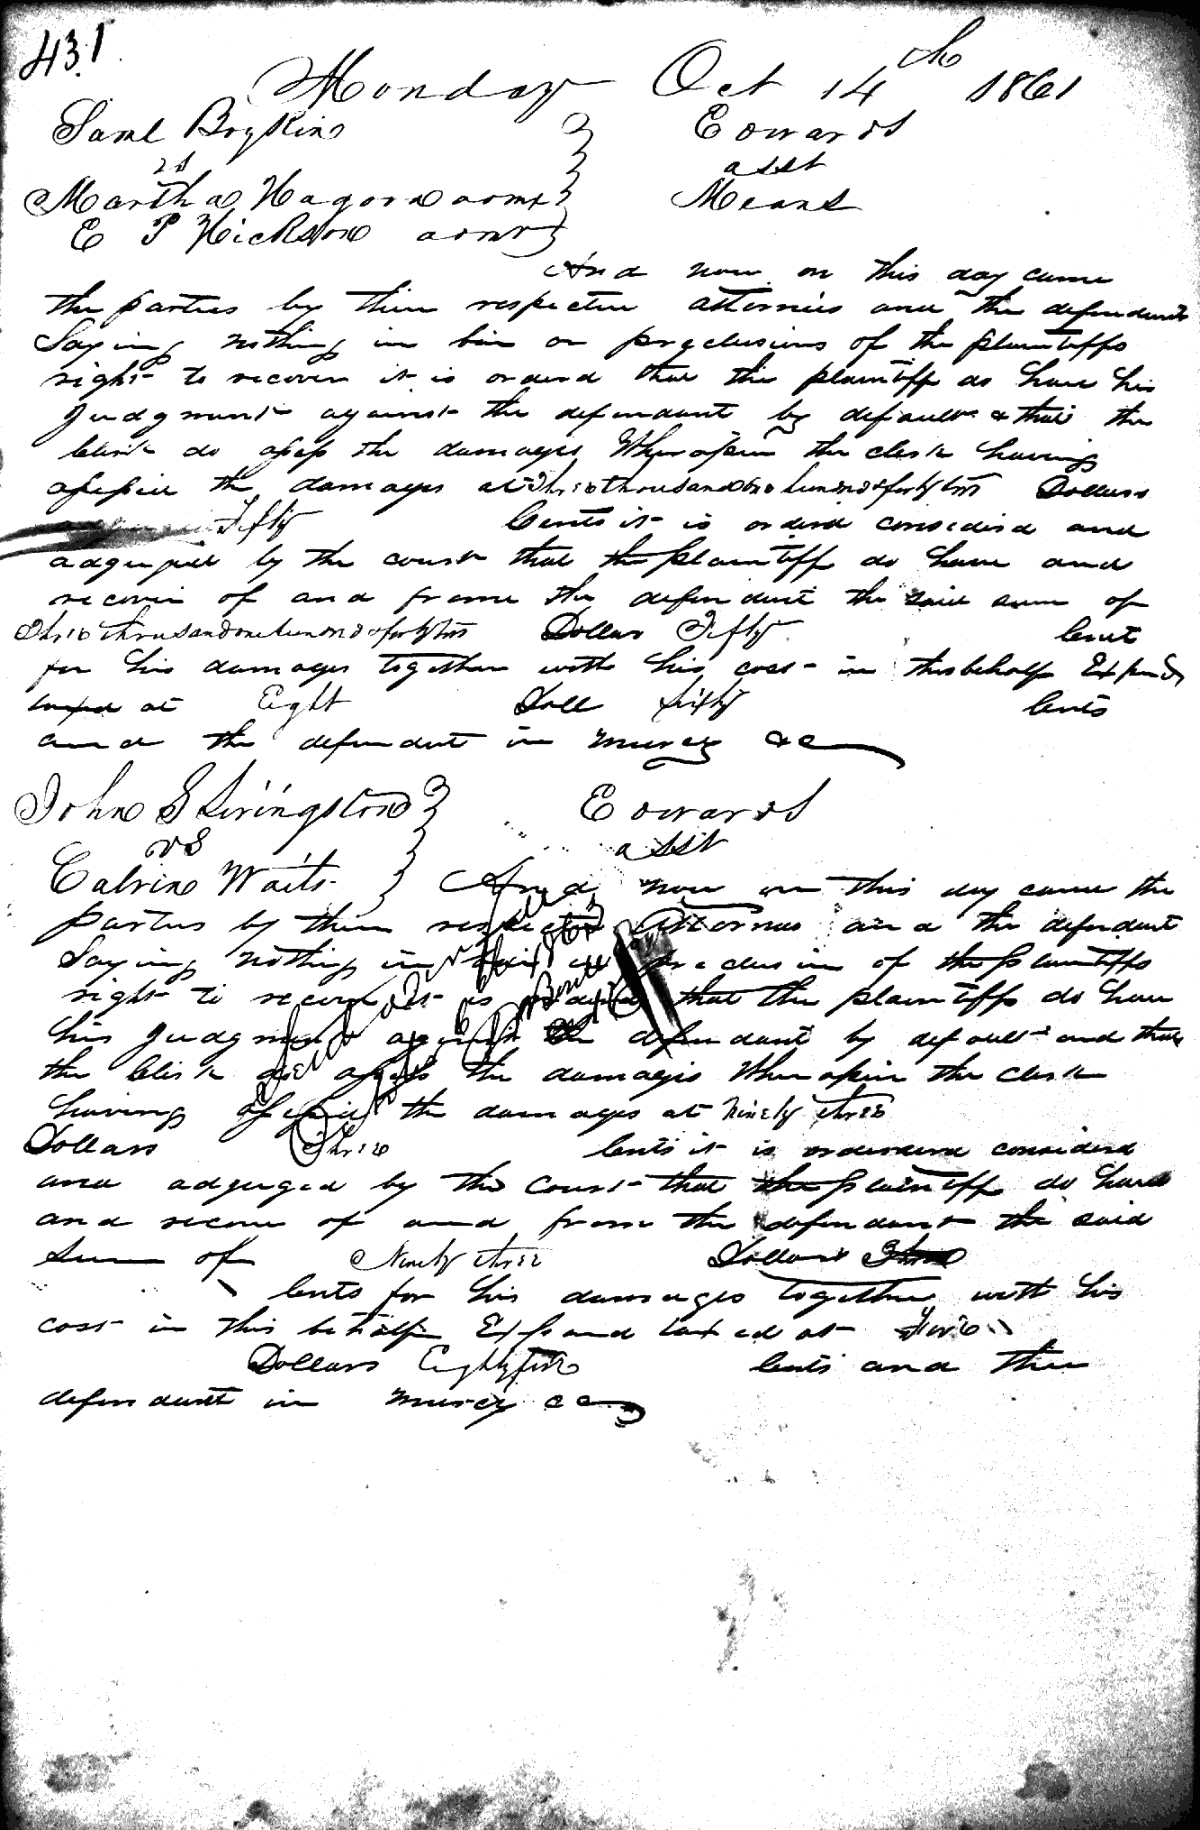 431
Monday Oct 14th 1861
Saml Boykin } Edwards
vs asst
Martha Hagood admx } Means
E P Hickson admr }
And now on this day came
the parties by their respective attornies and the defendants
Saying nothing in bar or preclusions of the plaintiffs
right to recover it is orderd that the plaintiff do have his
judgment against the defendant by default & that the
Clerk do assess the damages Whereupon the clerk having
assessed the damages at Three thousand one hundred & forty two Dollars
Fifty Cents it is orderd considerd and
adjudged by the court that the plaintiff do have and
recover of and from the defendant the said sum of
Three thousand one hundred & forty two Dollars Fifty Cent
for his damages together with his cost in this behalf Expend
taxed at Eight Doll sixty Cents
and the defendant in mercy &c
John S Livingston } Edwards
vs asst
Calvin Waits } And now on this day came the
parties by their respective Attornies and the defendant
Saying nothing in bar or preclusion of the plaintiffs
right to recover it is orderd that the plaintiff do have
his judgment against the defendant by default and that
the Clerk do assess the damages Whereupon the clerk
having assessed the damages at Ninety three
Dollars Three Cents it is orderd considerd
and adjudged by the Court that the plaintiff do have
and recover of and from the defendant the said
Sum of Ninety three Dollars Three
Cents for his damages together with his
cost in this behalf Expend taxed at
Dollars Eighty five Cents and the
defendant in mercy &c